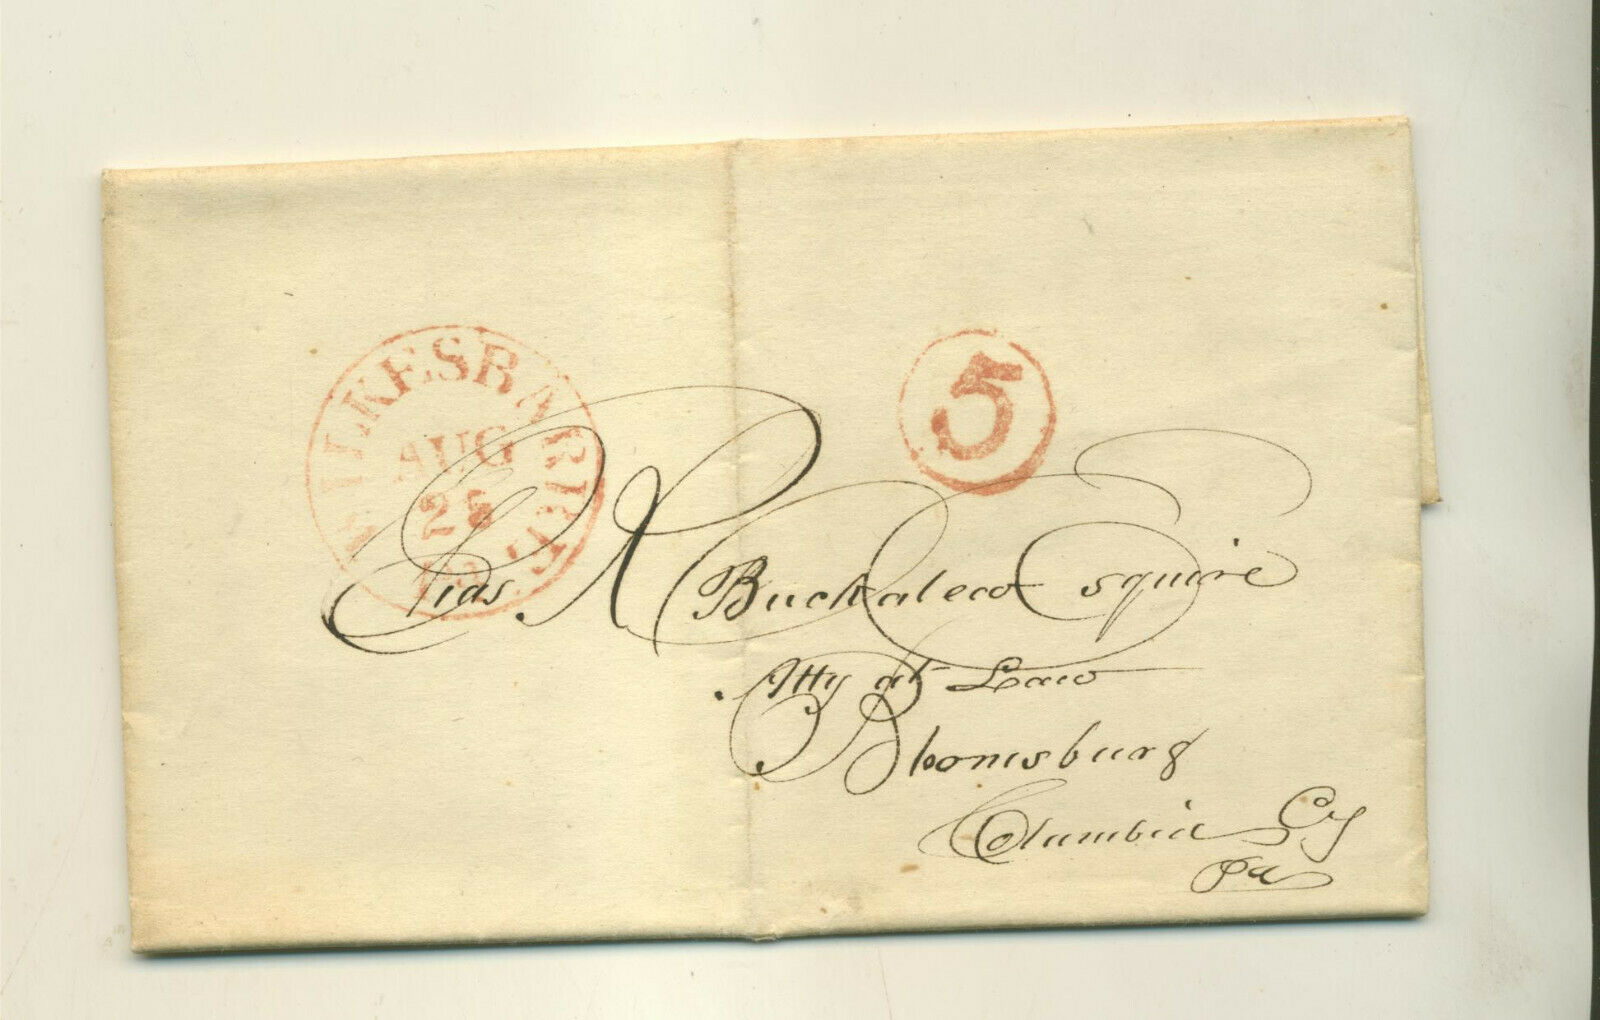 WILKESBARRE
AUG
28
Pa.
5
Chas R Buckalew Esquire
Atty at Law
Bloomsburg
Columbia Cy
Pa